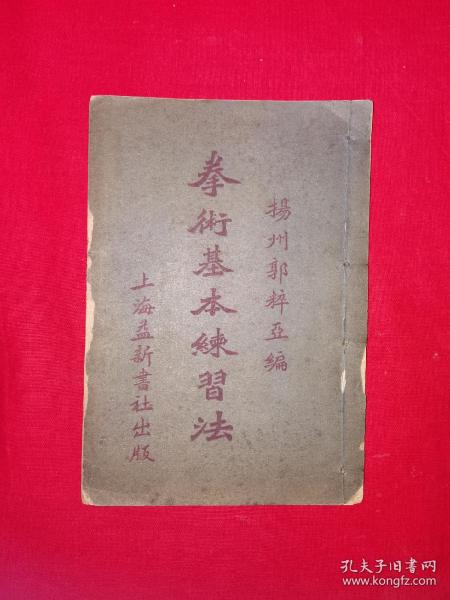 揚州郭粹亞編
拳術基本練習法
上海益新書社出版
孔夫子旧书网
www.kongfz.com